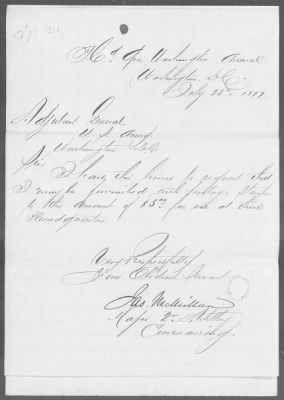 Hd. Qrs. Washington Arsenal
Washington D.C.
July 25th 1877
Adjutant General
U. S. Army
Washington D.C.
Sir
I have the honor to request that
I may be furnished with postage stamps
to the amount of $5.00 for use at these
Headquarters
Very Respectfully
Your Obedient Servant
Jas. McMillan
Major 2d Artillery
Commanding